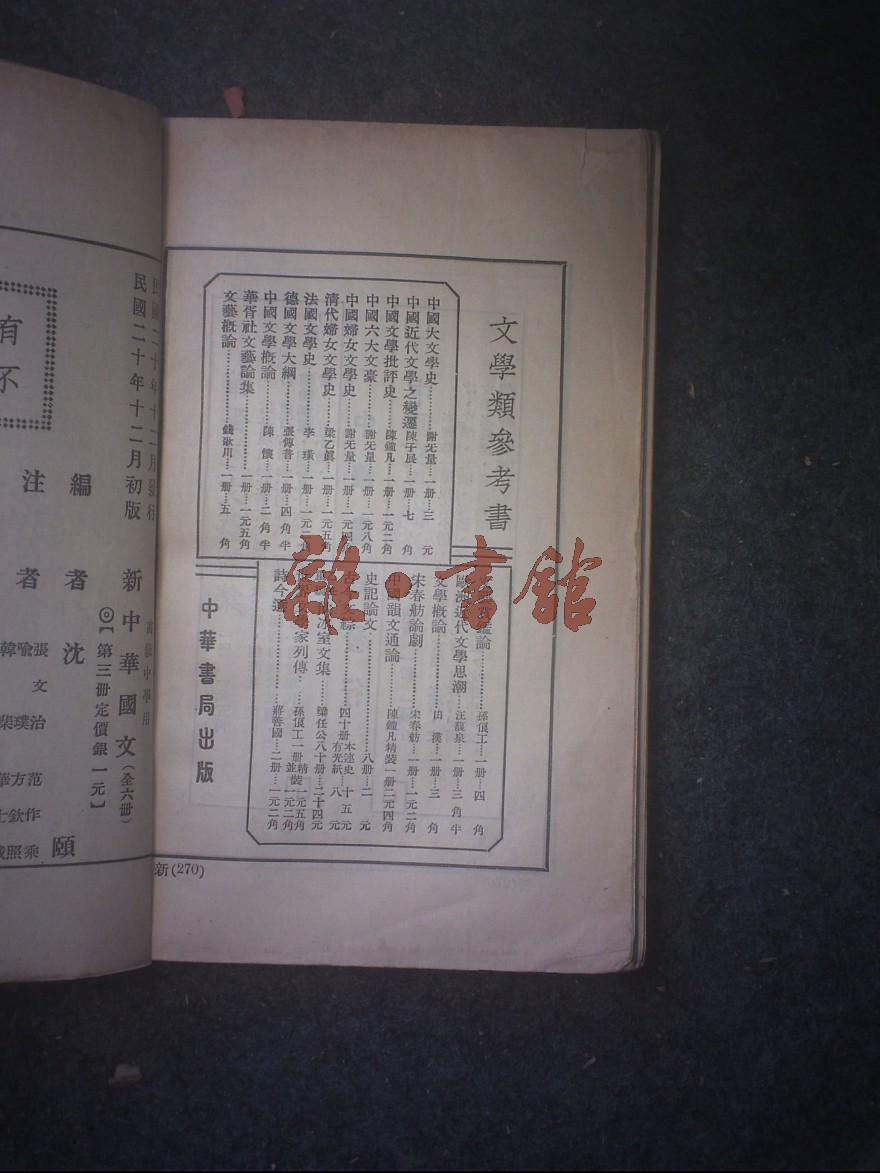 文學類參考書
中國大文學史……謝无量……一册…三元
中國近代文學之變遷陳子展…一册…七角
中國文學批評史……陳鐘凡…一册…一元二角
中國六大文豪……謝无量…一册…一元八角
中國婦女文學史……謝无量…一册…一元四
清代婦女文學史……梁乙眞…一册…一元五角
法國文學史……李璜…一册…一元二角
德國文學大綱……張傳普…一册…四角半
中國文學概論……陳懷…一册…二角半
華胥社文藝論集……一册…一元五角
文藝概論……錢歌川…一册…五角
鑑論……孫俍工…一册…四角
歐洲近代文學思潮…汪馥泉…一册…三角半
文學概論……田漢…一册…三角
宋春舫論劇……宋春舫…一册…一元二角
中國韻文通論……陳鐘凡精裝一册二元四角
史記論文……八册…二元
四十册本連史…十五元有光紙…八元
冰室文集……梁任公八十册…二十四元
家列傳…孫俍工一册精裝一元五角並裝一元二角
詩今選……蔣善國…二册…一元二角
中華書局出版
新(270)
民國二十年十二月發行
民國二十年十二月初版
高級中學用
新中華國文(全六册)
◎【第三册定價銀一元】
編者沈頤
注者
張文治
喻璞
韓
范作乘
方欽照
華
有
不
雜·書館